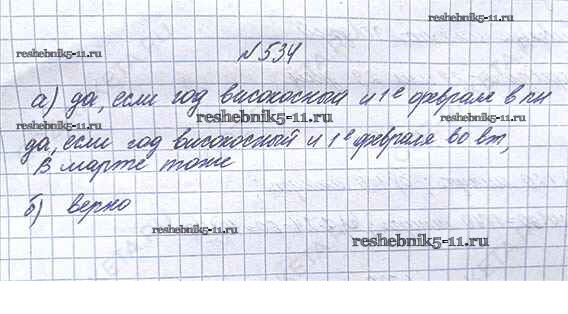 reshebnik5-11.ru
reshebnik5-11.ru
№534
а) да, если год високосный и 1е февраля в пн
reshebnik5-11.ru
да, если год високосный и 1е февраля во вт,
В марте тоже
б) верно
reshebnik5-11.ru
reshebnik5-11.ru